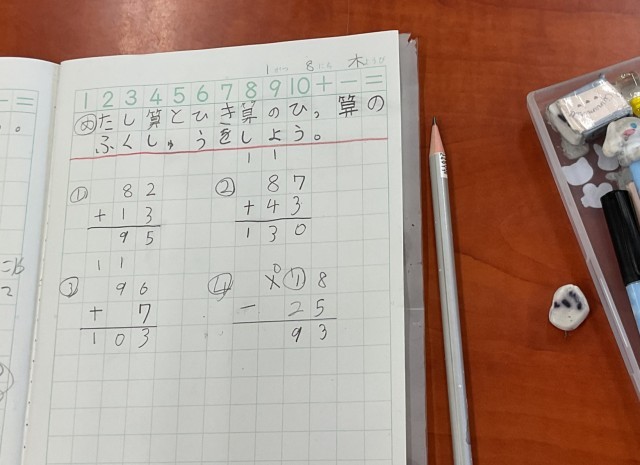 1 8 木
1 2 3 4 5 6 7 8 9 10 + − =
め たし算とひき算のひっ算の
ふくしゅうをしよう。
① 82
+ 13
95
1 1
② 87
+ 43
130
1 1
③ 96
+ 7
103
0
④ 118
− 25
93